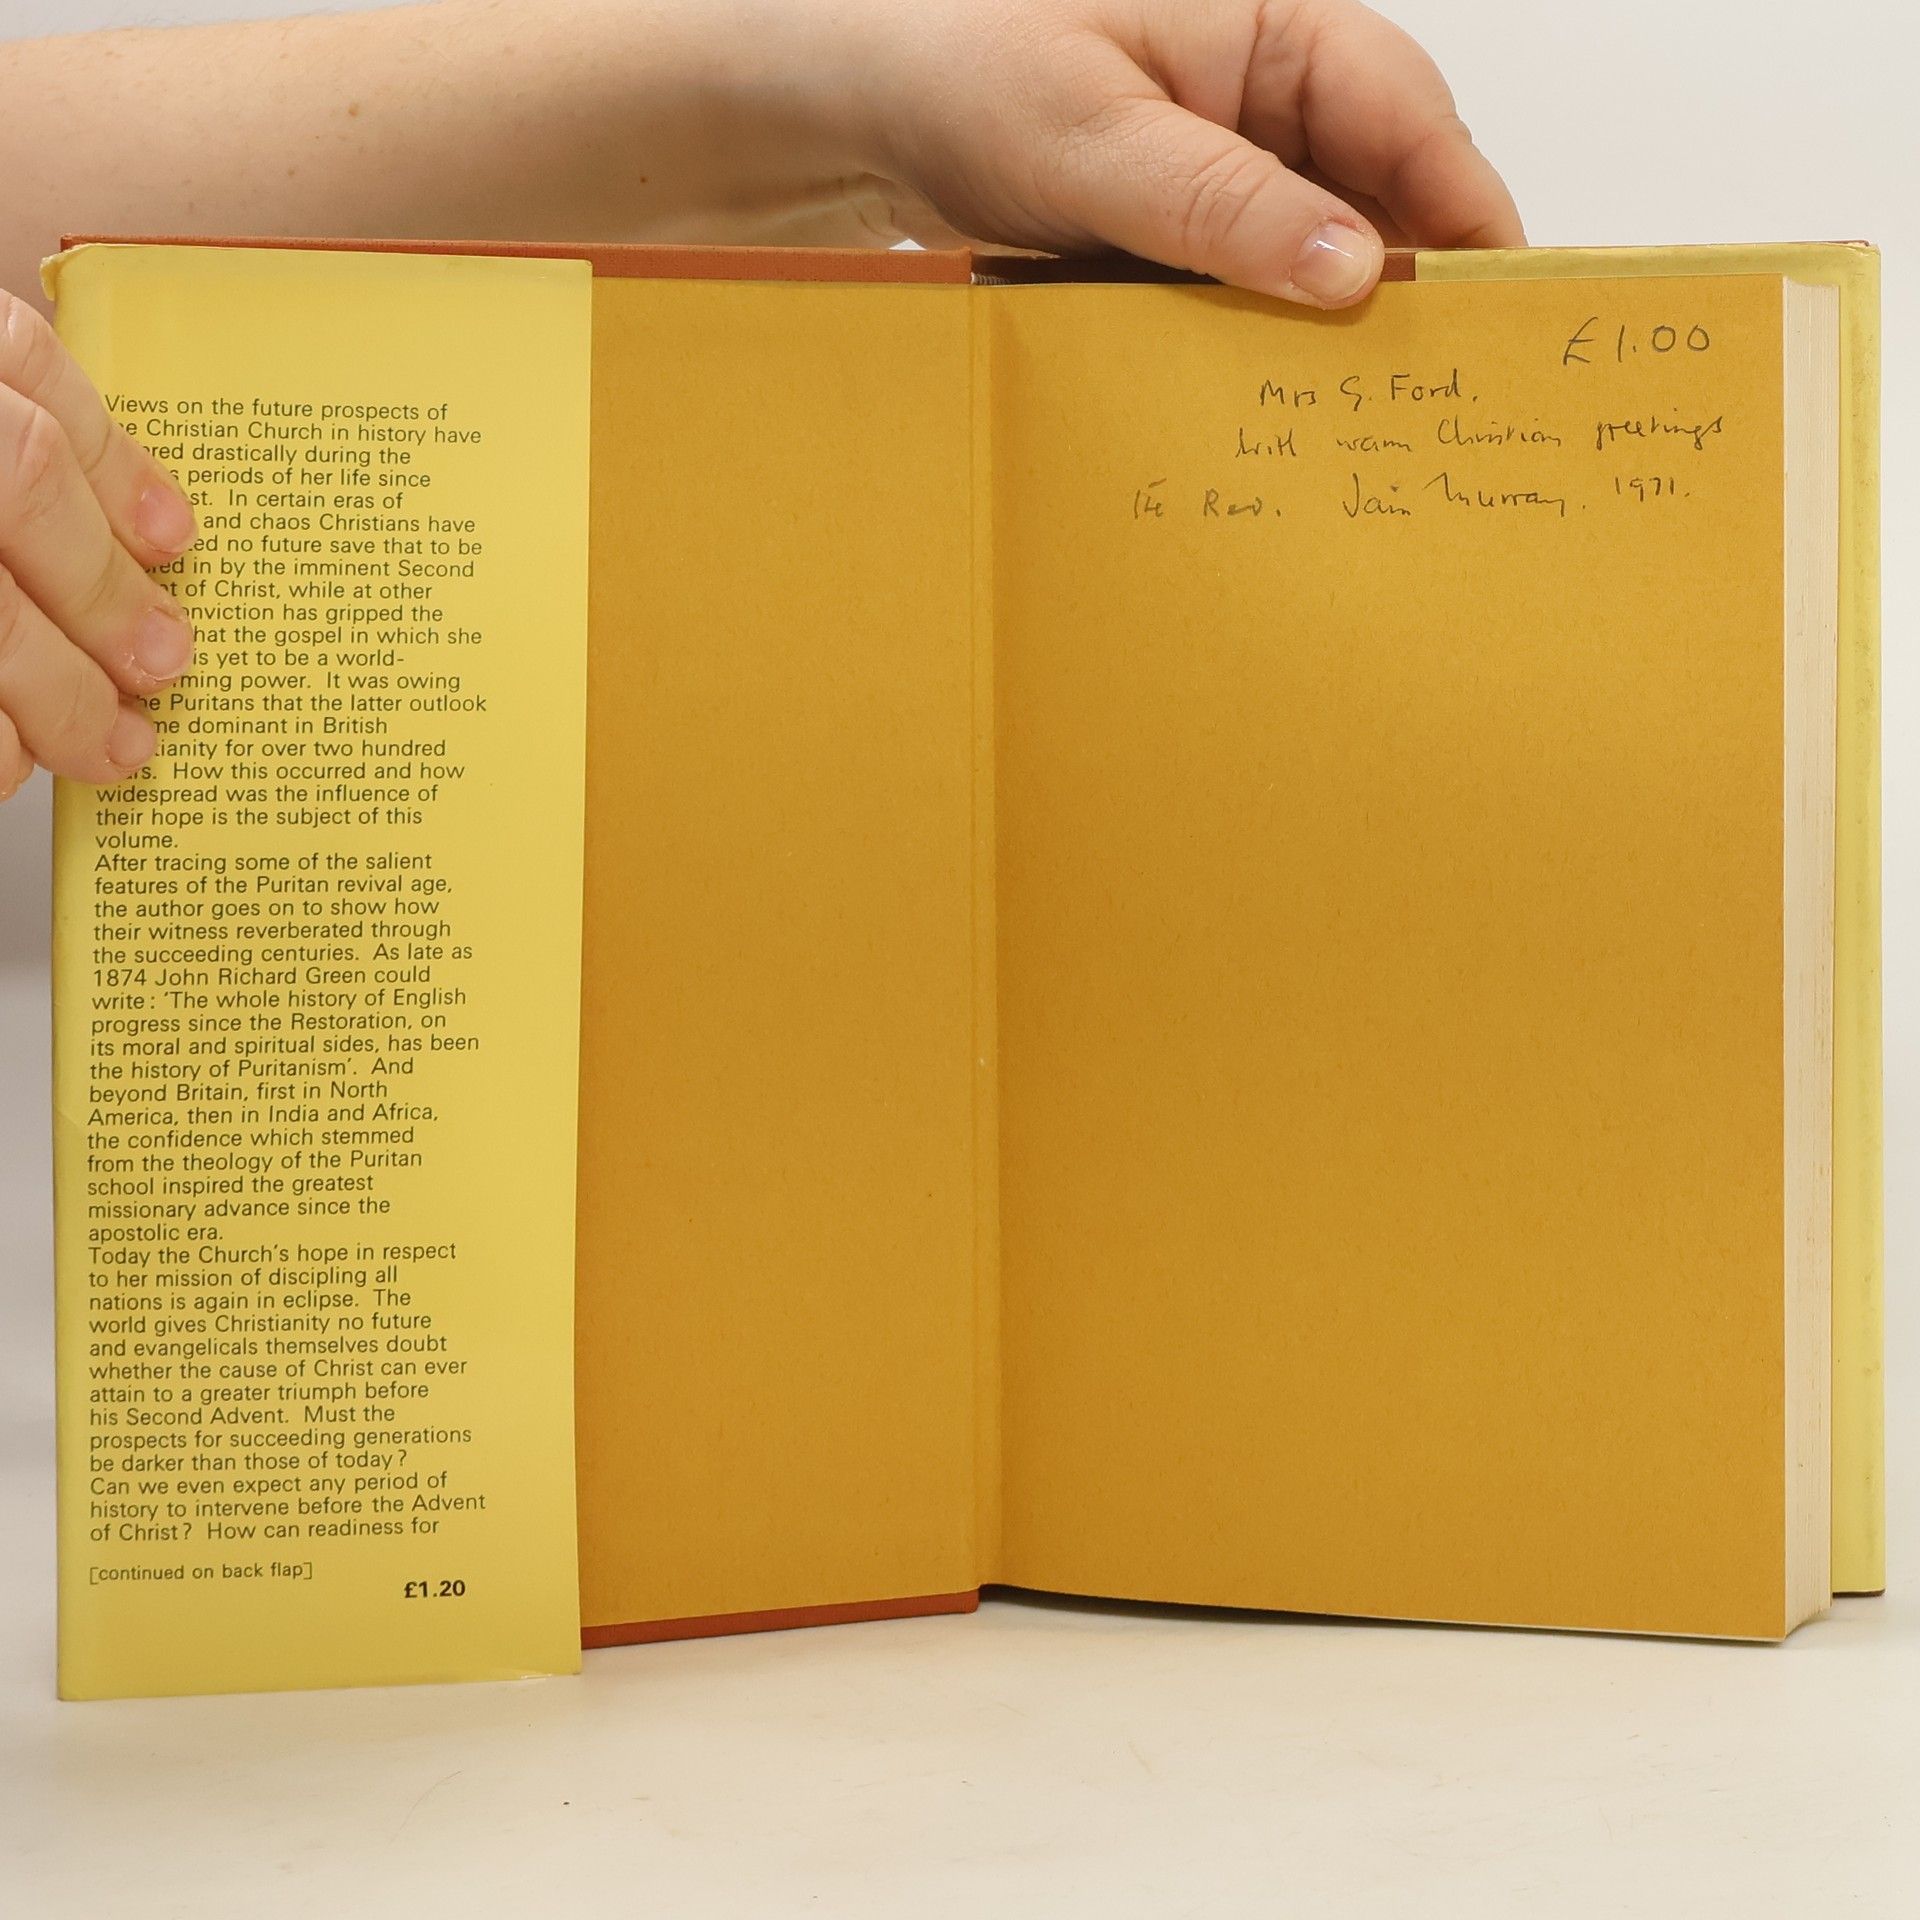 Views on the future prospects of
Christian Church in history have
drastically during the
periods of her life since
In certain eras of
and chaos Christians have
no future save that to be
in by the imminent Second
of Christ, while at other
has gripped the
the gospel in which she
is yet to be a world-
power. It was owing
Puritans that the latter outlook
dominant in British
for over two hundred
How this occurred and how
widespread was the influence of
their hope is the subject of this
volume.
After tracing some of the salient
features of the Puritan revival age,
the author goes on to show how
their witness reverberated through
the succeeding centuries. As late as
1874 John Richard Green could
write: 'The whole history of English
progress since the Restoration, on
its moral and spiritual sides, has been
the history of Puritanism'. And
beyond Britain, first in North
America, then in India and Africa,
the confidence which stemmed
from the theology of the Puritan
school inspired the greatest
missionary advance since the
apostolic era.
Today the Church's hope in respect
to her mission of discipling all
nations is again in eclipse. The
world gives Christianity no future
and evangelicals themselves doubt
whether the cause of Christ can ever
attain to a greater triumph before
his Second Advent. Must the
prospects for succeeding generations
be darker than those of today?
Can we even expect any period of
history to intervene before the Advent
of Christ? How can readiness for
[continued on back flap]
£1.20
£1.00
Mrs G. Ford.
with warm Christian greetings
Rev. Iain Murray. 1971.